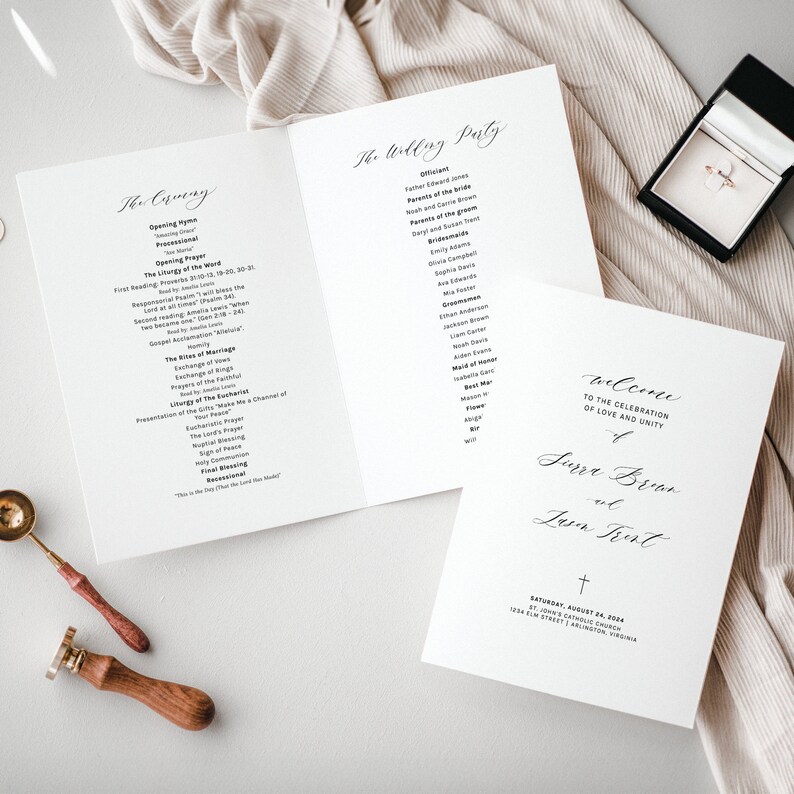 The Ceremony
Opening Hymn
"Amazing Grace"
Processional
"Ave Maria"
Opening Prayer
The Liturgy of the Word
First Reading: Proverbs 31:10-13, 19-20, 30-31.
Read by: Amelia Lewis
Responsorial Psalm "I will bless the
Lord at all times" (Psalm 34).
Second reading: Amelia Lewis "When
two became one." (Gen 2:18 – 24).
Read by: Amelia Lewis
Gospel Acclamation "Alleluia".
Homily
The Rites of Marriage
Exchange of Vows
Exchange of Rings
Prayers of the Faithful
Read by: Amelia Lewis
Liturgy of The Eucharist
Presentation of the Gifts "Make Me a Channel of
Your Peace"
Eucharistic Prayer
The Lord's Prayer
Nuptial Blessing
Sign of Peace
Holy Communion
Final Blessing
Recessional
"This is the Day (That the Lord Has Made)"
The Wedding Party
Officiant
Father Edward Jones
Parents of the bride
Noah and Carrie Brown
Parents of the groom
Daryl and Susan Trent
Bridesmaids
Emily Adams
Olivia Campbell
Sophia Davis
Ava Edwards
Mia Foster
Groomsmen
Ethan Anderson
Jackson Brown
Liam Carter
Noah Davis
Aiden Evans
Maid of Honor
Isabella
Best
Mason
welcome
TO THE CELEBRATION
OF LOVE AND UNITY
of
Sierra Brown
and
Jason Trent
SATURDAY, AUGUST 24, 2024
ST. JOHN'S CATHOLIC CHURCH
1234 ELM STREET | ARLINGTON, VIRGINIA